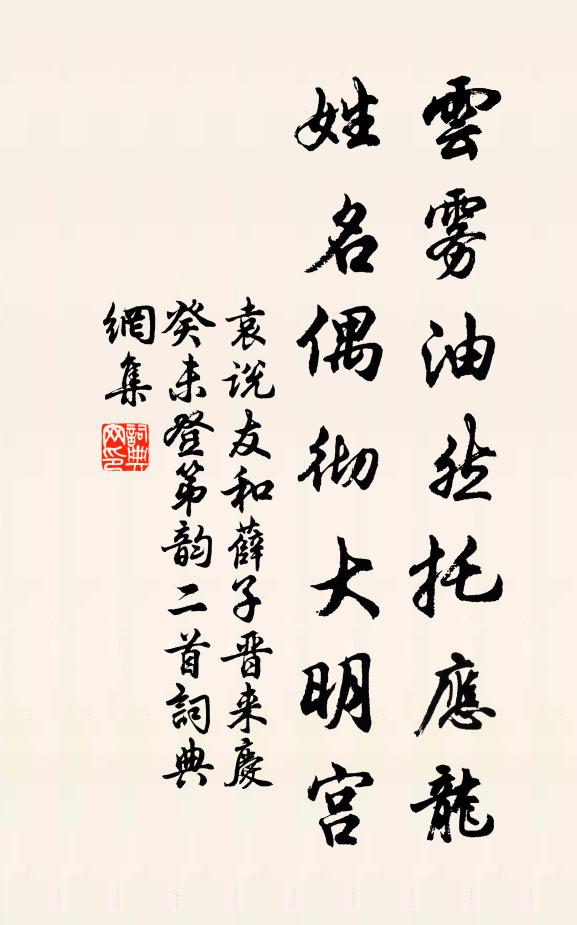 雲霧油然托應龍
姓名偶彻大明宫
袁说友和薛子晋来慶
癸未登第韵二首詞典
網集
詞典
网印